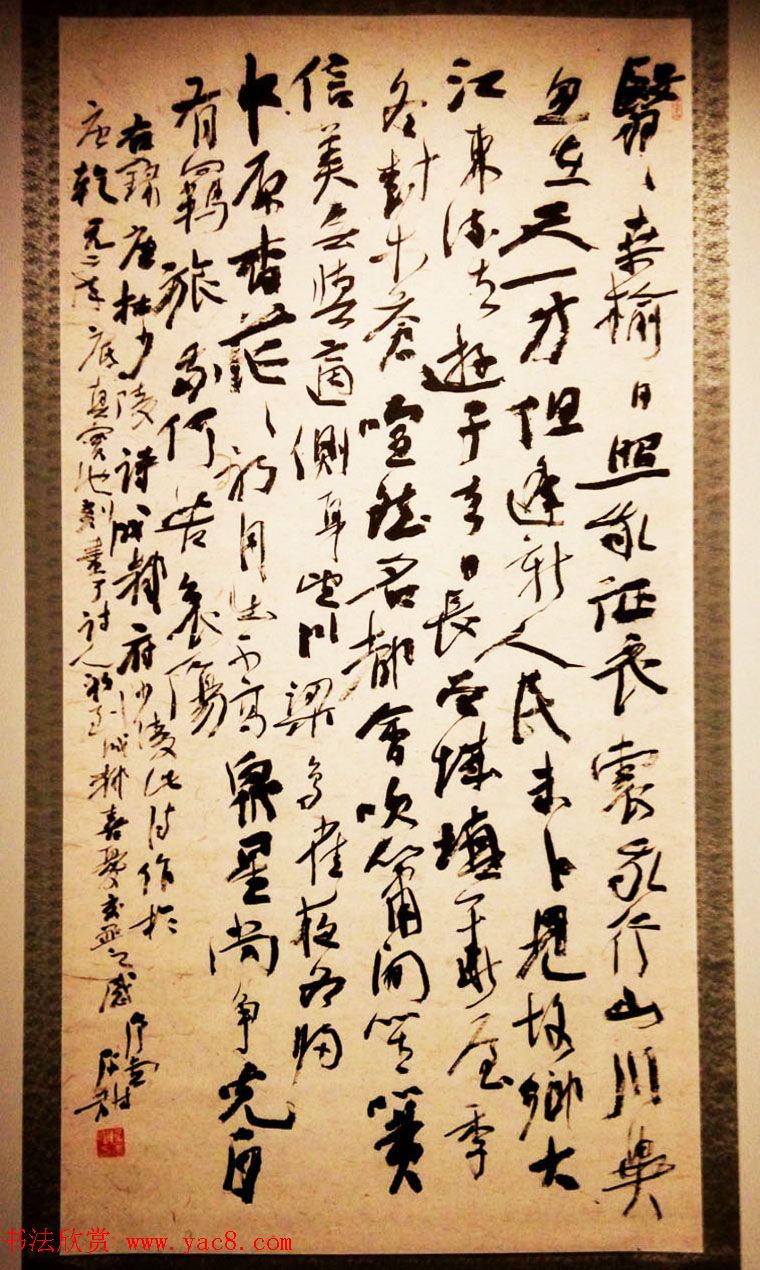 翳〻桑榆日照我征衣裳我行山川異
忽在天一方但逢新人民未卜見故鄉大
江東流去遊子去日長曾城填華屋季
冬樹木蒼喧然名都會吹簫間笙簧
信美無與適側身望川梁鳥雀夜各歸
中原杳茫〻初月出不高衆星尚爭光自
有羈旅我何苦哀傷
右錄唐杜少陵詩成都府少陵此詩作於
唐乾元二年底真實地刻畫了詩人初到成都喜憂交並之感
书法欣赏 www.yac8.com